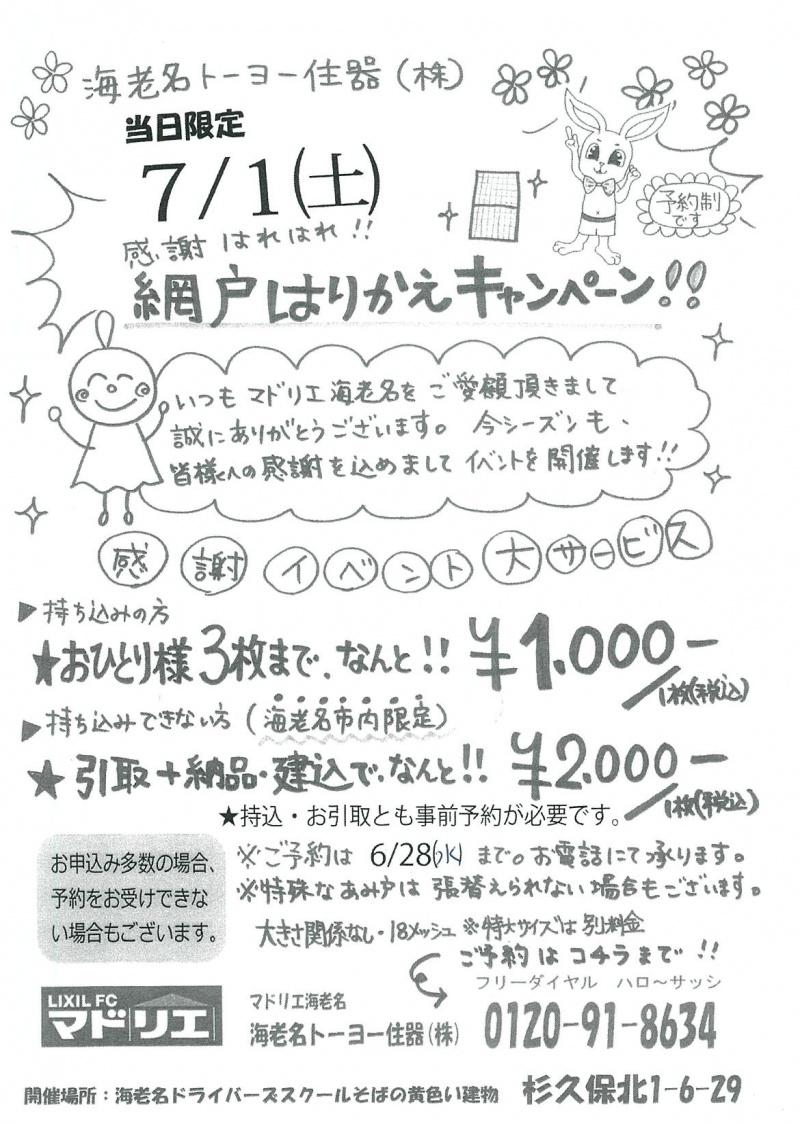 海老名トーヨー住器(株)
当日限定
7/1(土)
予約制
です
感謝 はれはれ!!
網戸はりかえキャンペーン!!
いつも マドリエ海老名を ご愛願頂きまして
誠にありがとうございます。 今シーズンも、
皆様への感謝を込めまして イベントを開催します!!
感謝イベント大サービス
▶持ち込みの方
★おひとり様3枚まで、なんと!! ¥1.000ー/1枚(税込)
▶持ち込みできない方(海老名市内限定)
★引取+納品・建込で、なんと!! ¥2.000ー/1枚(税込)
★持込・お引取とも事前予約が必要です。
お申込み多数の場合、
予約をお受けできな
い場合もございます。
※ご予約は 6/28(水)まで。お電話にて承ります。
※特殊なあみ戸は 張替えられない場合もございます。
大きさ関係なし・18メッシュ ※特大サイズは別料金
ご予約はコチラまで!!
フリーダイヤル ハロ〜サッシ
LIXIL FC
マドリエ
マドリエ海老名
海老名トーヨー住器(株)
0120-91-8634
開催場所:海老名ドライバーズスクールそばの黄色い建物 杉久保北1-6-29